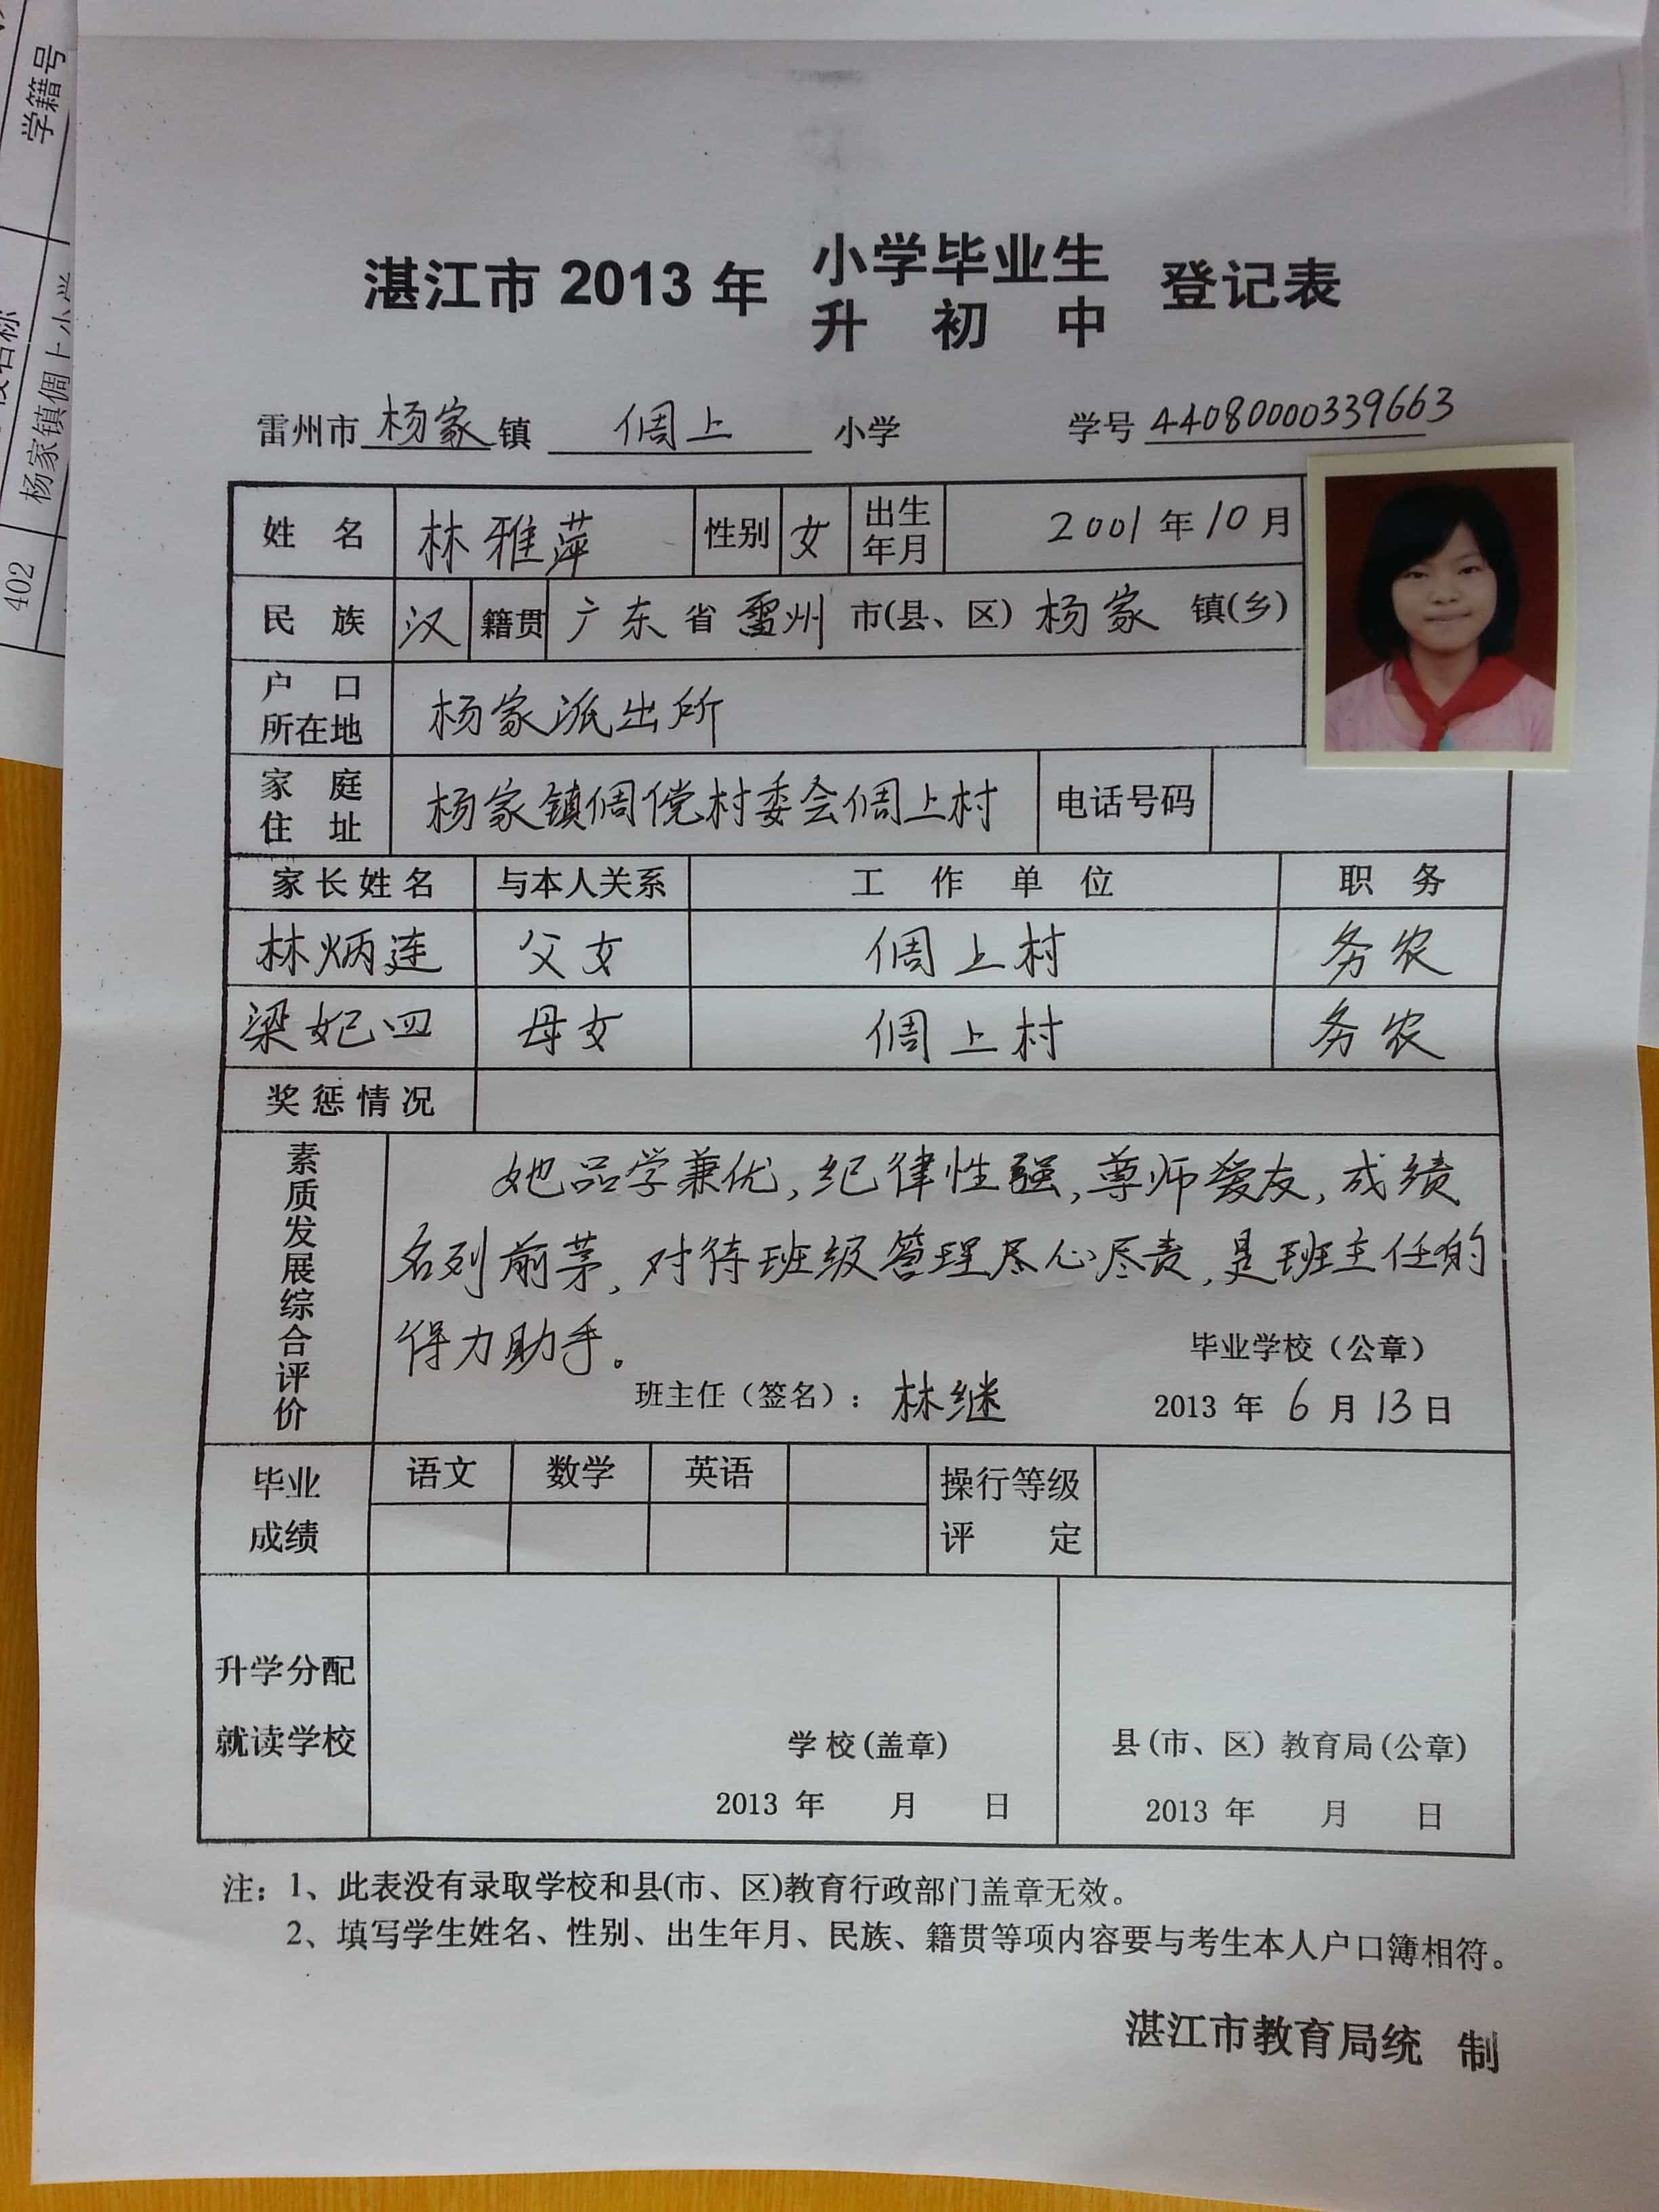 学籍号
杨家镇倜上小学
402
湛江市 2013 年 小学毕业生 登记表
升 初 中
雷州市 杨家 镇 倜上 小学 学号 44080000339663
姓 名 林雅萍 性别 女 出生年月 2001 年 10 月
民 族 汉 籍贯 广东 省 雷州 市(县、区) 杨家 镇(乡)
户 口 所在地 杨家派出所
家 庭 住 址 杨家镇倜傥村委会倜上村 电话号码
家长姓名 与本人关系 工 作 单 位 职 务
林炳连 父女 倜上村 务农
梁妃四 母女 倜上村 务农
奖惩情况
素质发展综合评价
她品学兼优,纪律性强,尊师爱友,成绩
名列前茅,对待班级管理尽心尽责,是班主任的
得力助手。
毕业学校(公章)
班主任(签名): 林继
2013 年 6 月 13 日
毕业成绩 语文 数学 英语 操行等级评 定
升学分配
就读学校
学校(盖章) 县(市、区)教育局(公章)
2013 年 月 日 2013 年 月 日
注: 1、此表没有录取学校和县(市、区)教育行政部门盖章无效。
2、填写学生姓名、性别、出生年月、民族、籍贯等项内容要与考生本人户口簿相符。
湛江市教育局统 制